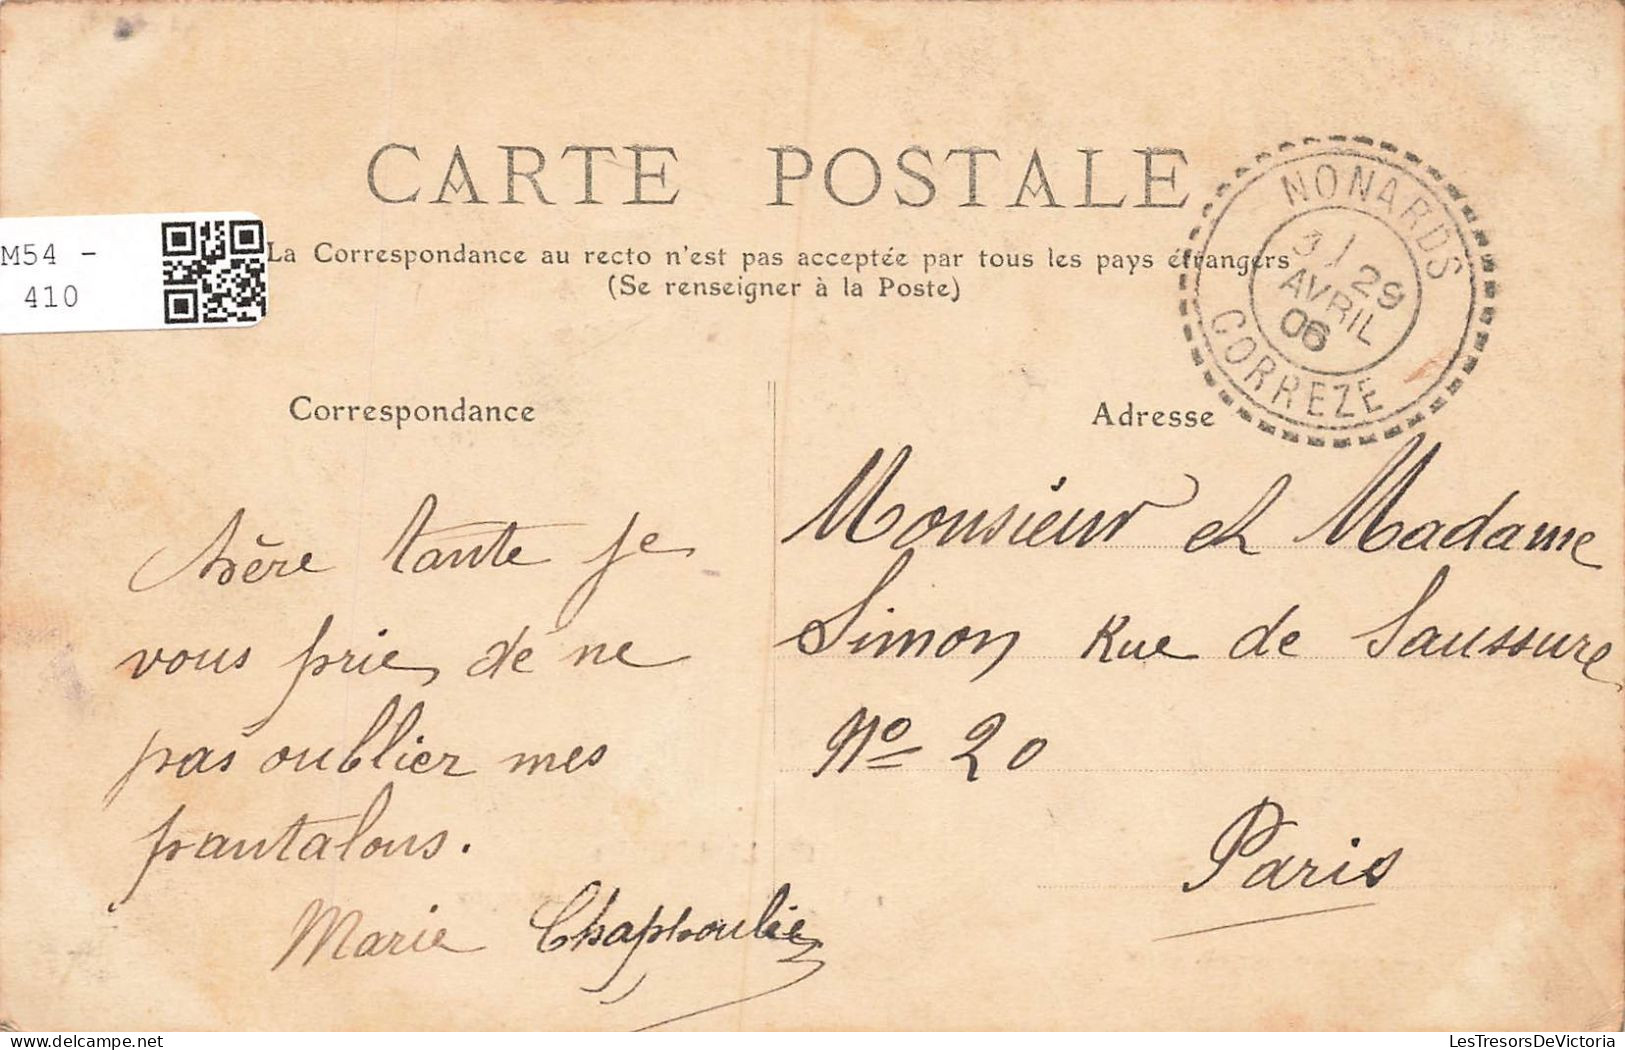 CARTE POSTALE
La Correspondance au recto n'est pas acceptée par tous les pays étrangers
(Se renseigner à la Poste)
M54 -
410
NONARDS
3 / 29
AVRIL
06
CORREZE
Correspondance
chère tante je
vous prie de ne
pas oublier mes
pantalons.
Marie Chaphoulie
Adresse
Monsieur et Madame
Simon Rue de Saussure
No 20
Paris
LesTresorsDeVictoria